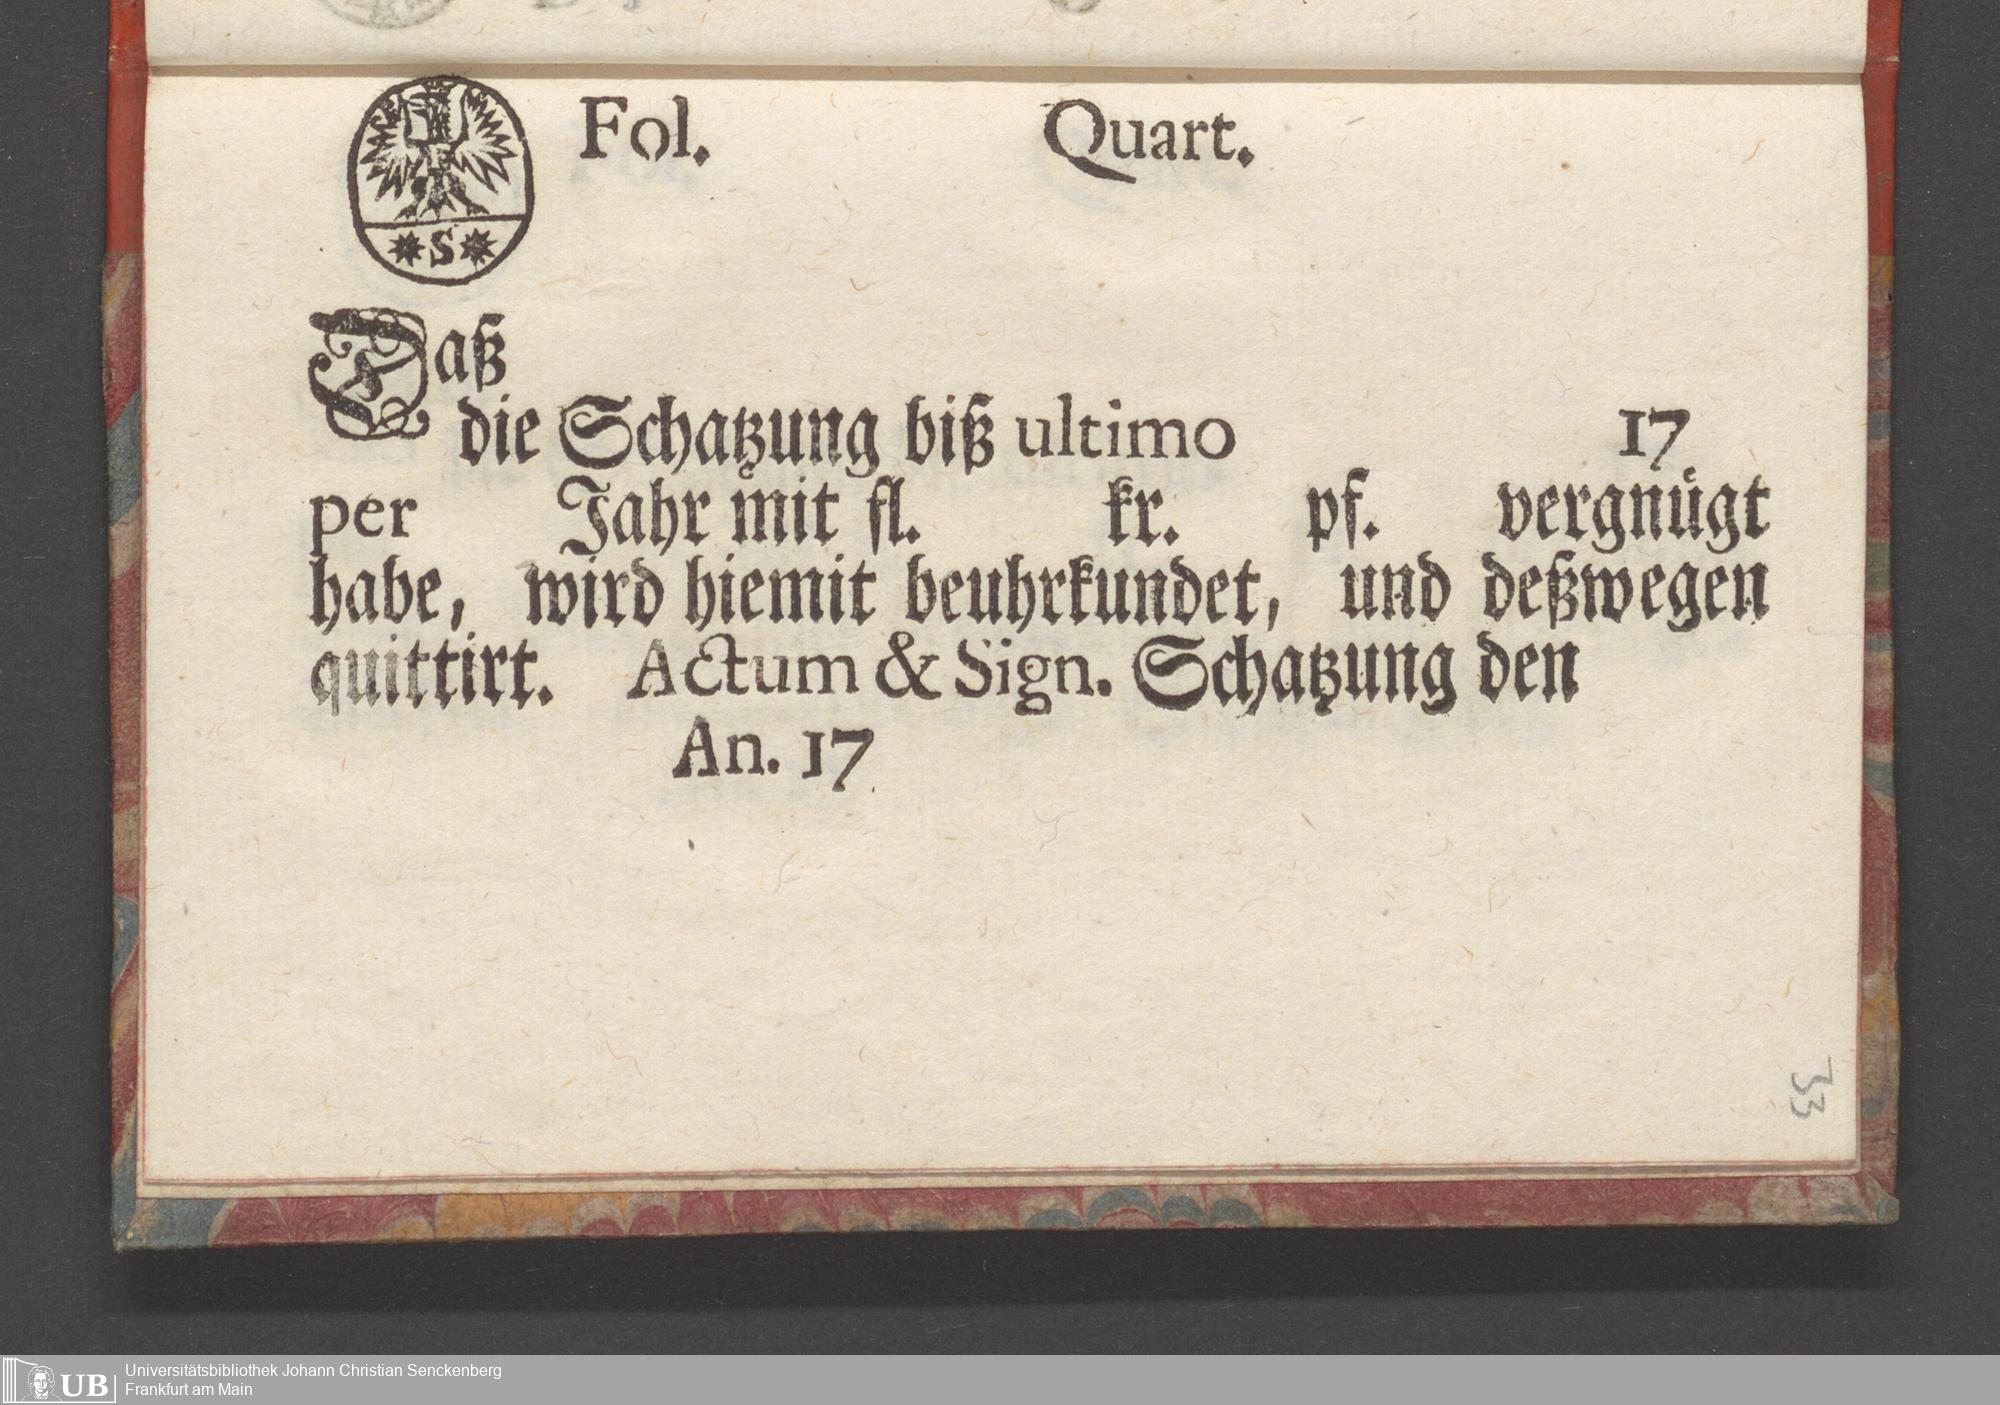 S
Fol. Quart.
Daß
die Schatzung biß ultimo 17
per Jahr mit fl. kr. pf. vergnügt
habe, wird hiemit beuhrkundet, und deßwegen
quittirt. Actum & Sign. Schatzung den
An. 17
33
UB
Universitätsbibliothek Johann Christian Senckenberg
Frankfurt am Main